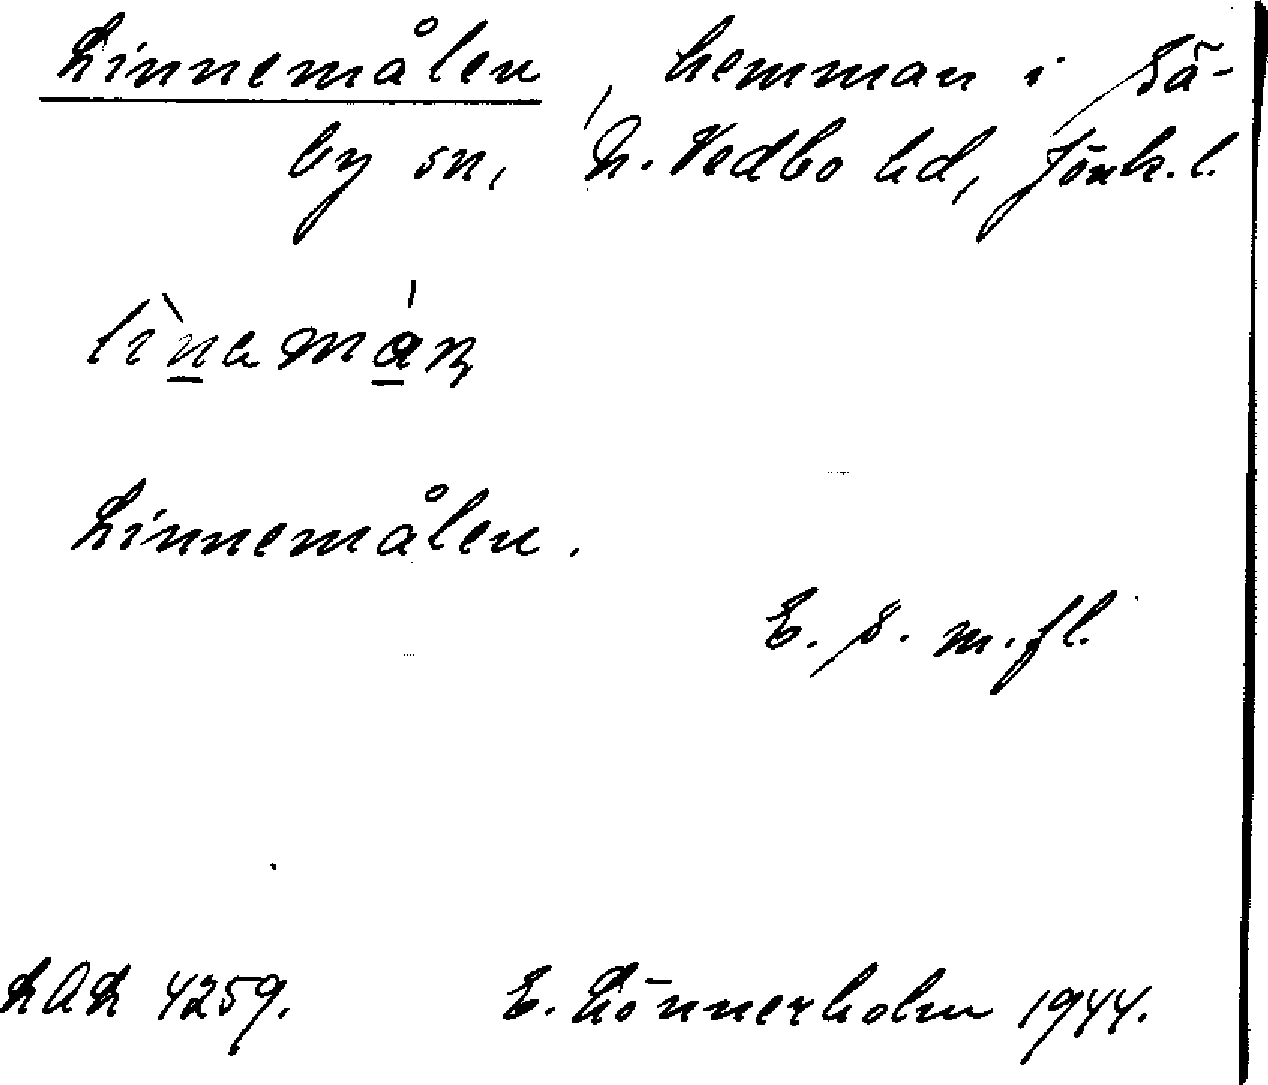 Linnemålen, hemman i Sä-
by sn, N. Vedbo hd, Jönk. l.
Linnemålen.
E. S. m. fl.
LAL 4259. E. Lönnerholm 1944.